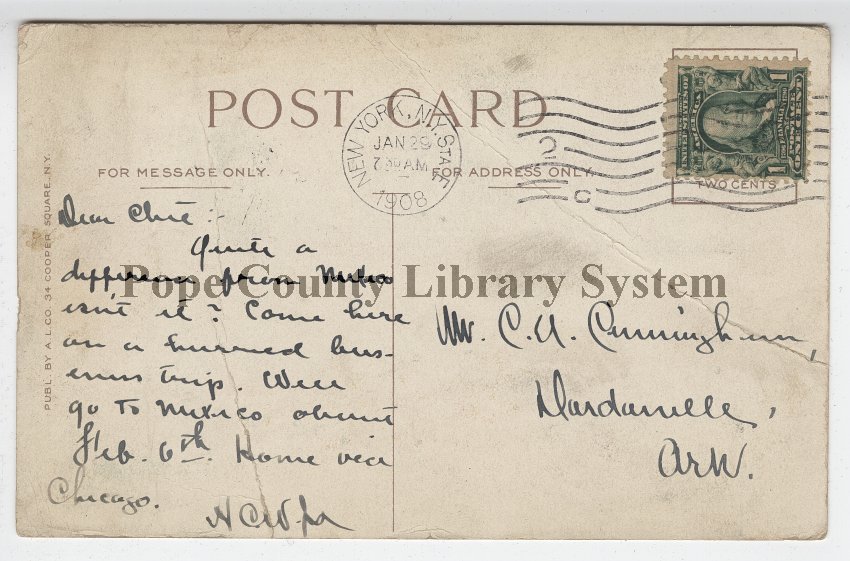 POST CARD
NEW YORK, N.Y. STA.
JAN 29
7 30 AM
1908
C
UNITED STATES OF AMERICA
1
1
FOR MESSAGE ONLY.
FOR ADDRESS ONLY.
TWO CENTS
PUBL. BY A.L.CO. 34 COOPER SQUARE, N.Y.
Dear
Quite a
from Mexico
isn't it? Came here
on a hurried bus-
iness trip. Will
go to Mexico about
Feb. 6th. Home via
Chicago.
Pope County Library System
Mr. C. A. Cunningham,
Dardanelle,
Ark.